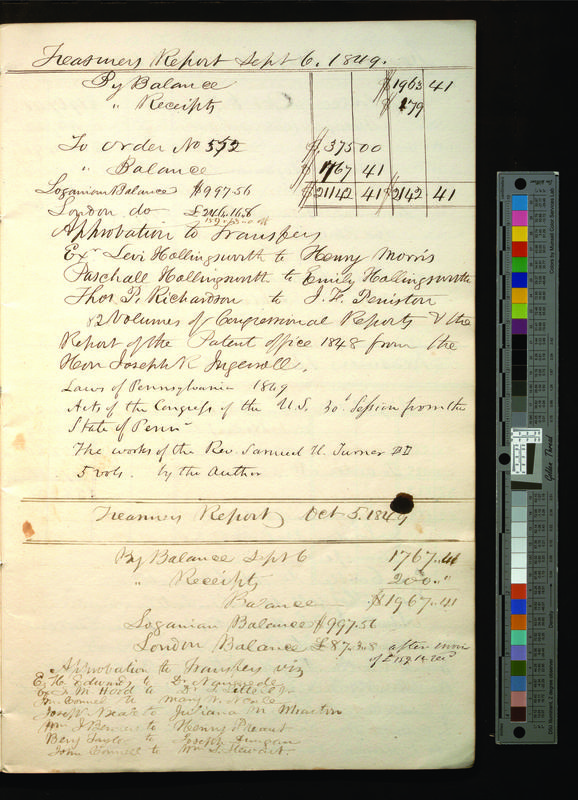 Treasurers Report Sept 6. 1849.
By Balance $ 1963 41
" Receipts $ 179
To order No 552 $ 375 00
" Balance $ 1767 41
Loganian Balance $997.56 $ 2142 41 $ 2142 41
London do £246.16.8
Approbation to Transfers
Exr Levi Hollingsworth to Henry Morris
Paschall Hollingsworth to Emily Hollingsworth
Thos P. Richardson to J. F. Deniston
Volumes of Congressional Reports & the
Report of the Patent office 1848 from the
Hon Joseph R Ingersoll.
Laws of Pennsylvania 1849
Acts of the Congress of the U.S. 30d Session from the
State of Penna
The works of the Rev. Samuel H. Turner DD
5 vols. by the Author
Treasurers Report Oct 5. 1849
By Balance Sept 6 1767..41
" Receipts 200.."
Balance $1967..41
Loganian Balance $997.56
London Balance £87.3.8 after
of £159.
Approbation to Transfers viz
E. H. Edwards to Dr
M Hord to Dr
to Mary
Joseph Neale to Juliana M Wharton
to Henry
Benj Taylor to Joseph
John to Wm S. Stewart.